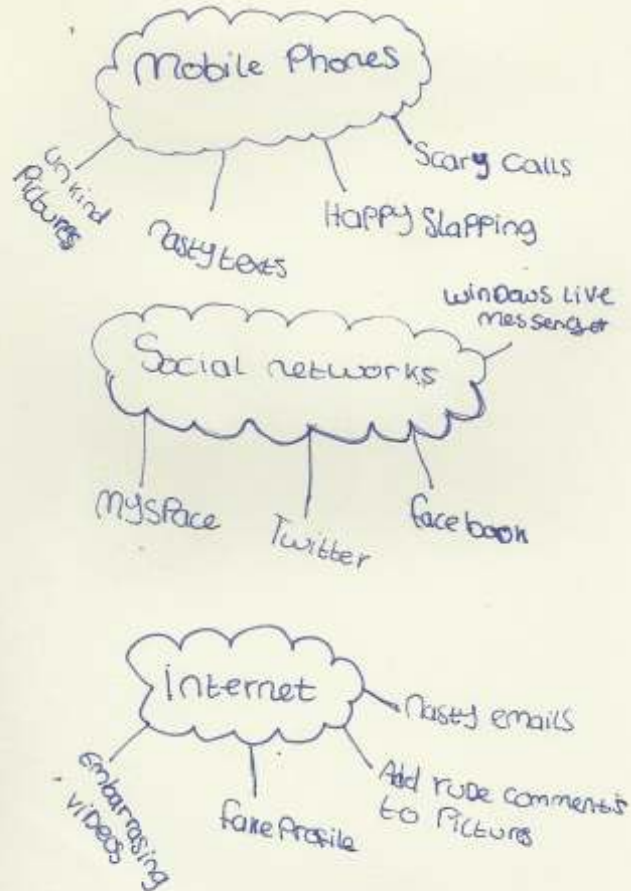 Mobile Phones
unkind
Pictures
nasty texts
Happy Slapping
Scary Calls
Social networks
winDows Live
messenger
MySpace
Twitter
facebook
Internet
Embarrasing
videos
fake Profile
Add ruDe comments
to Pictures
Nasty emails